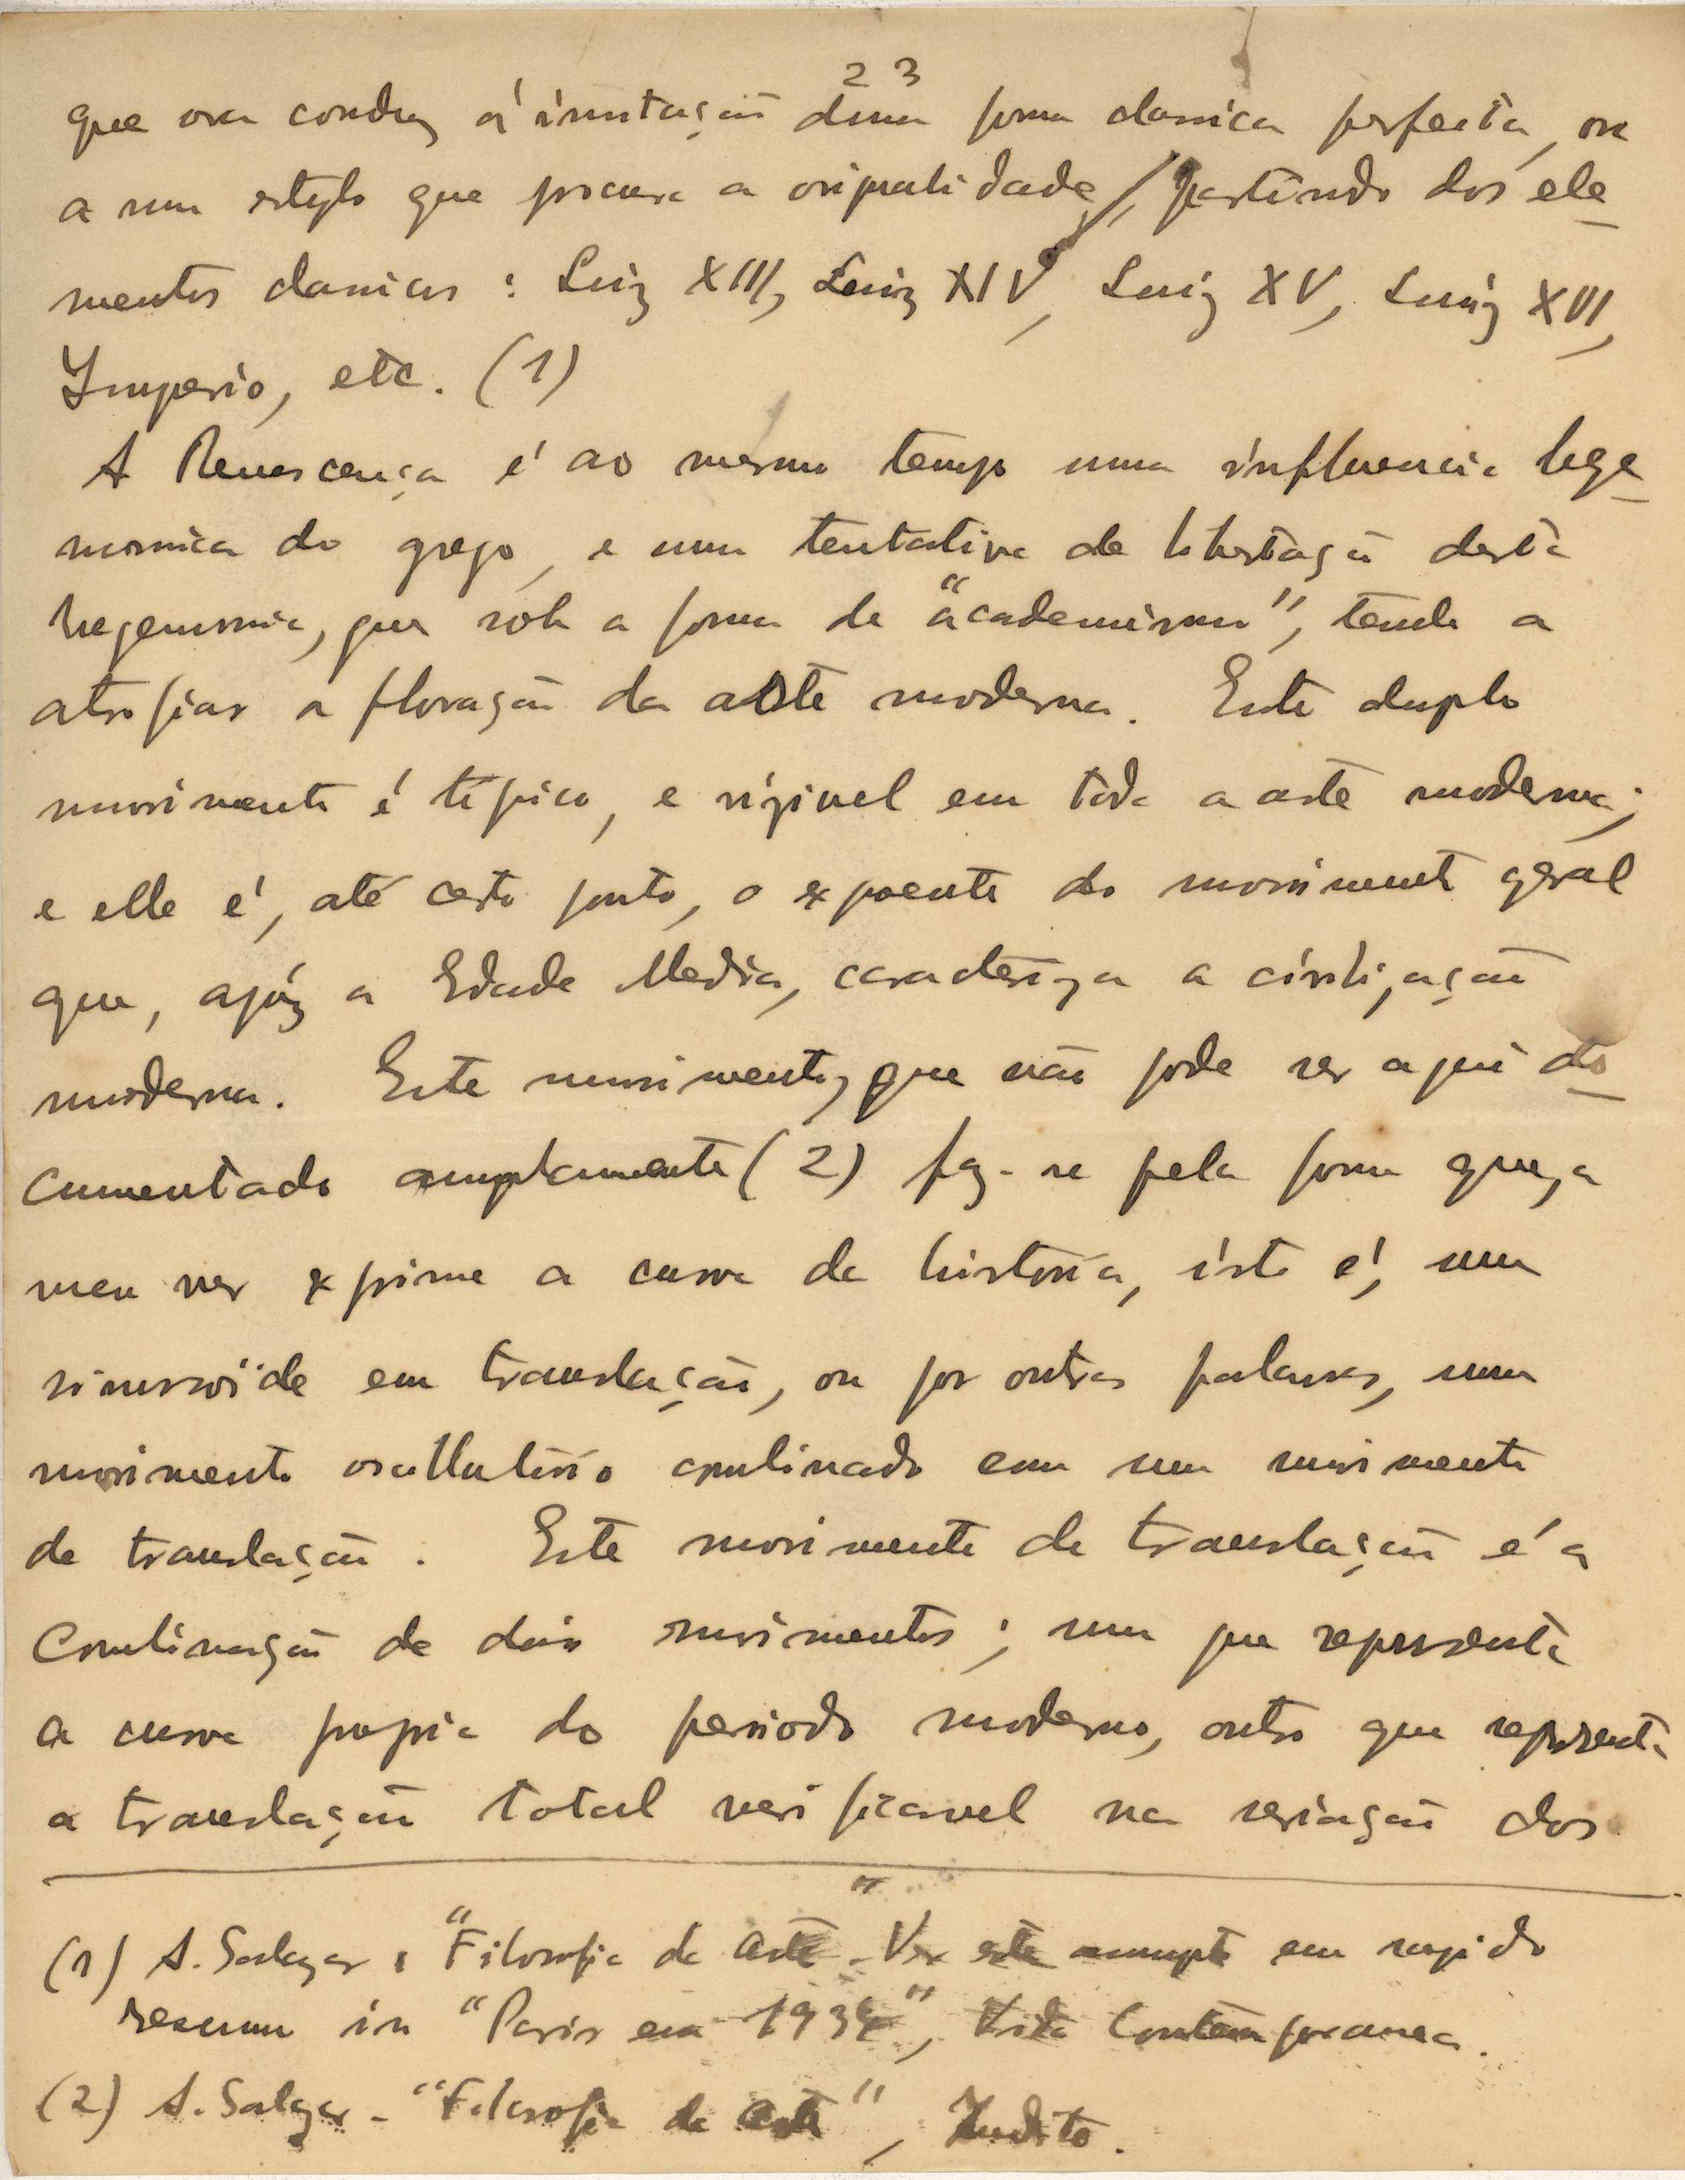 23
que ora conduz á imitação duma forma classica perfeita, ou
a um estylo que procura a originalidade, partindo dos ele-
mentos classicos: Luiz XIII, Luiz XIV, Luiz XV, Luiz XVI,
Imperio, etc. (1)
A Renascença é ao mesmo tempo uma influencia hege-
monica do grego, e uma tentativa de libertação desta
hegemonia, que sob a forma de "academismo", tende a
atrofiar a floração da arte moderna. Este duplo
movimento é típico, e visivel em toda a arte moderna;
e elle é, até certo ponto, o expoente do movimento geral
que, apóz a Edade Media, caracteriza a civilização
moderna. Este movimento, que não pode ser aqui do-
cumentado amplamente (2) faz-se pela forma que, a
meu ver exprime a curva da história, isto é, uma
sinusoïde em translação, ou por outras palavras, um
movimento oscillatório combinado com um movimento
de translação. Este movimento de translação é a
combinação de dois movimentos; um que representa
a curva propria do periodo moderno, outro que representa
a translação total verificavel na seriação dos
(1) A. Salazar: "Filosofia da Arte". Ver este assumpto em rapido
resumo in "Paris em 1934", Vida Contemporanea.
(2) A. Salazar - "Filosofia da Arte", Inedito.